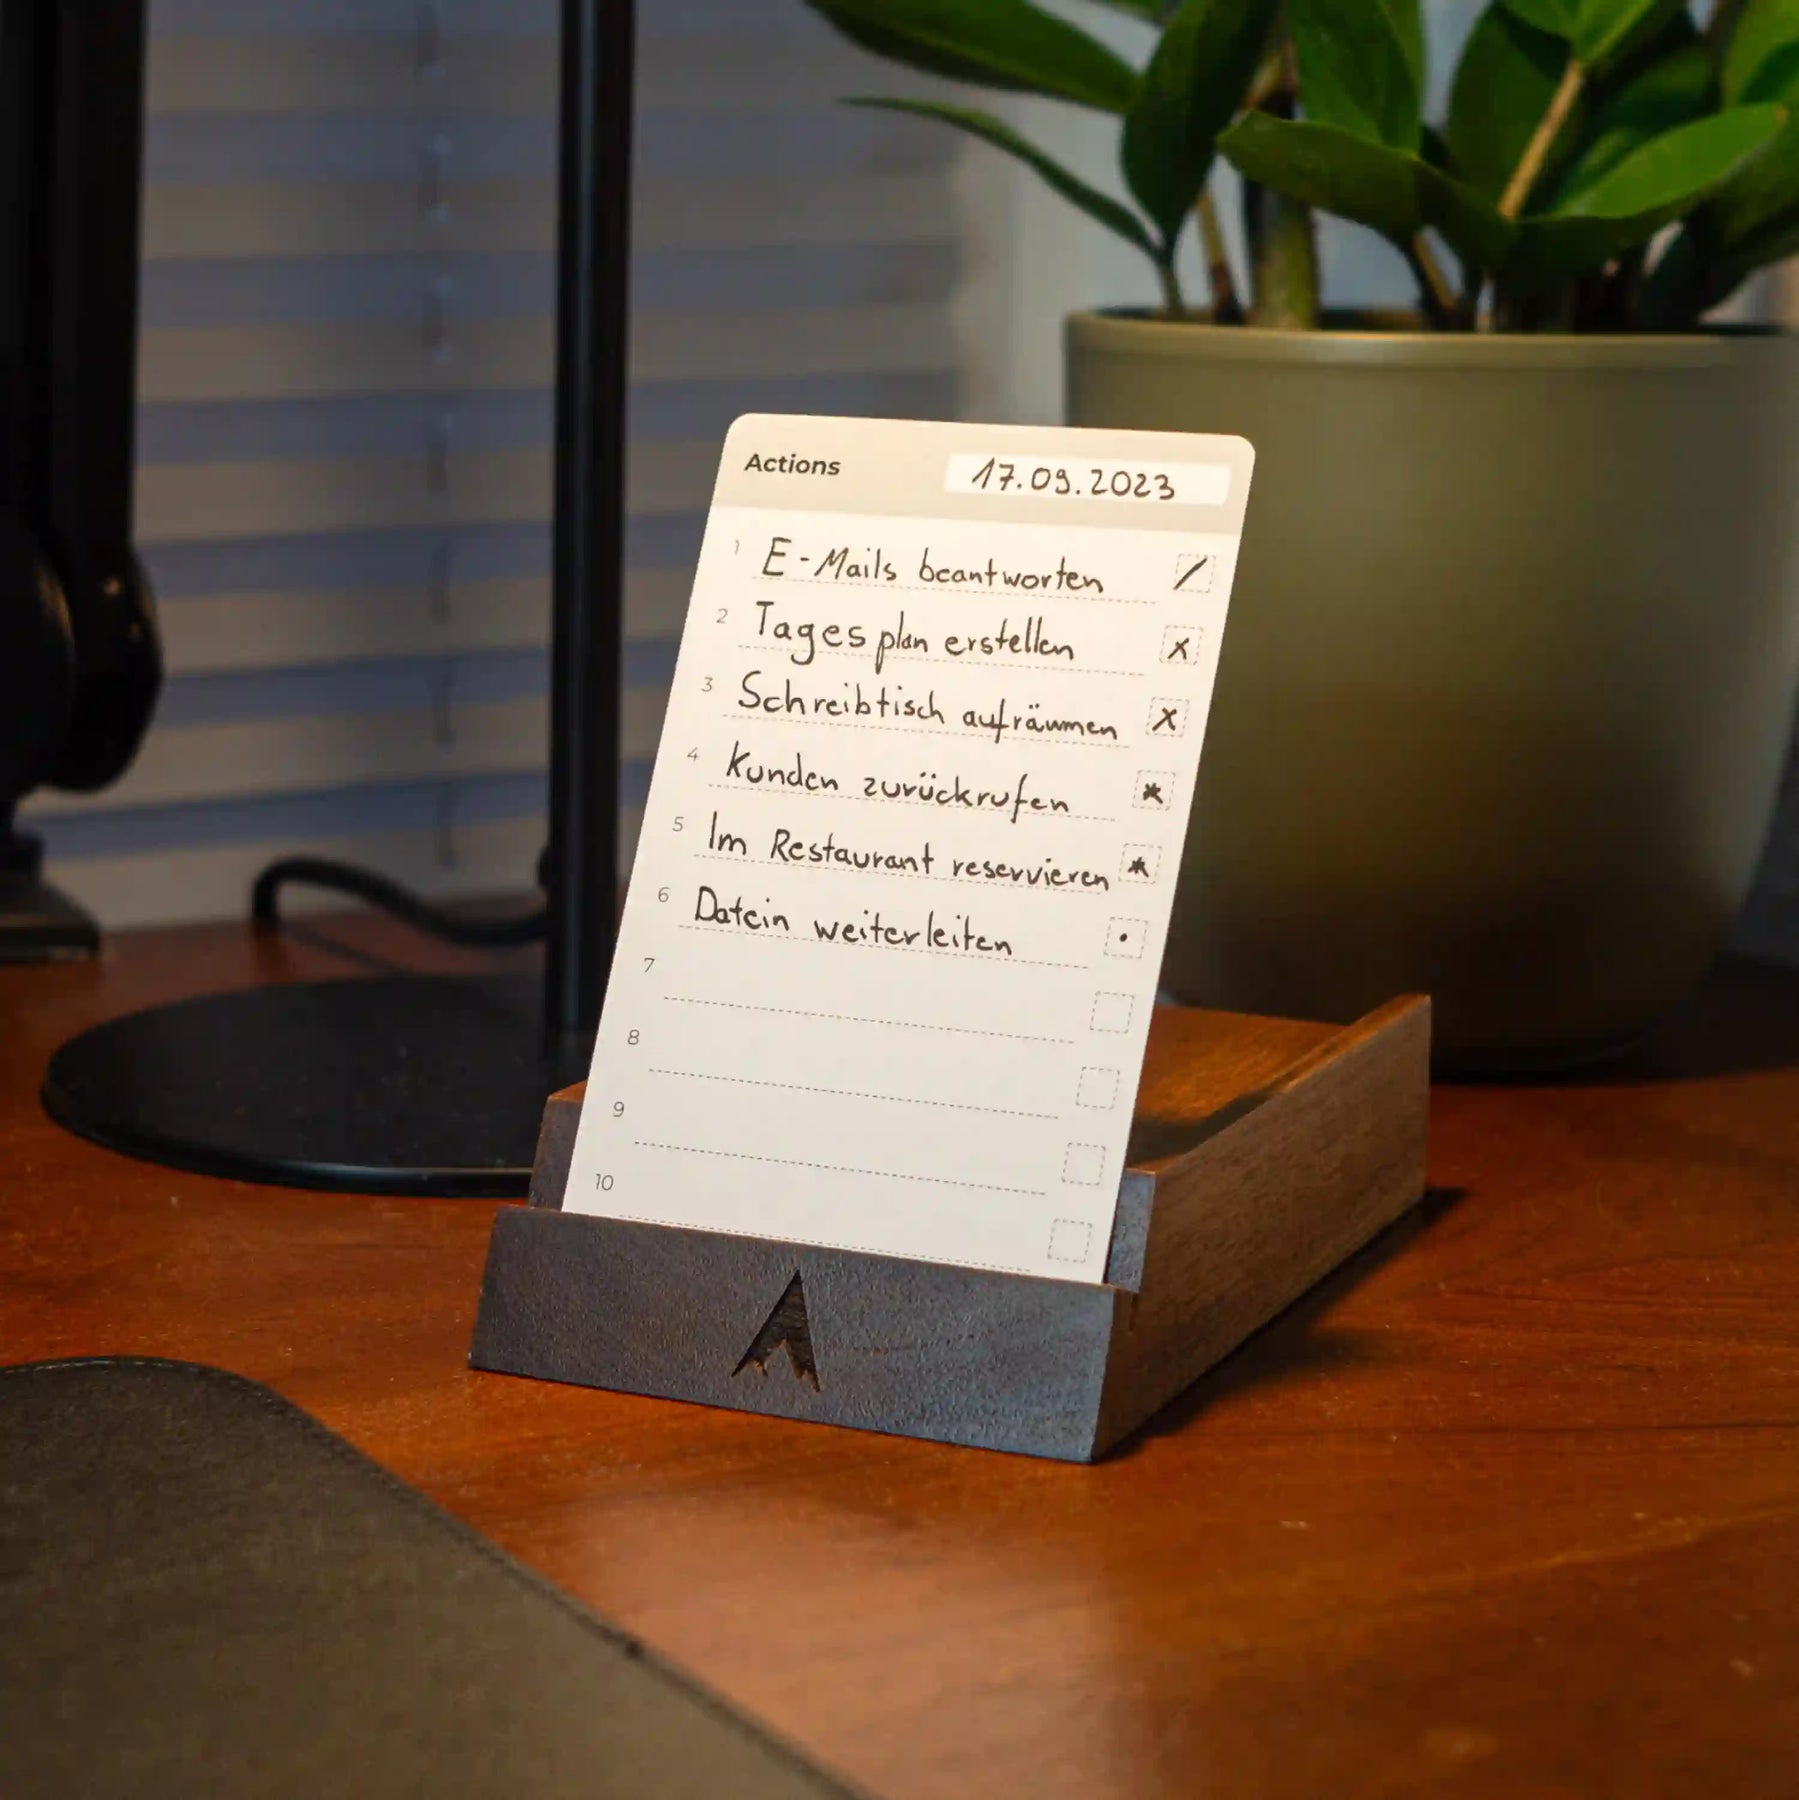 Actions 17.09.2023
1 E-Mails beantworten
2 Tagesplan erstellen
3 Schreibtisch aufräumen
4 Kunden zurückrufen
5 Im Restaurant reservieren
6 Datein weiterleiten
7
8
9
10